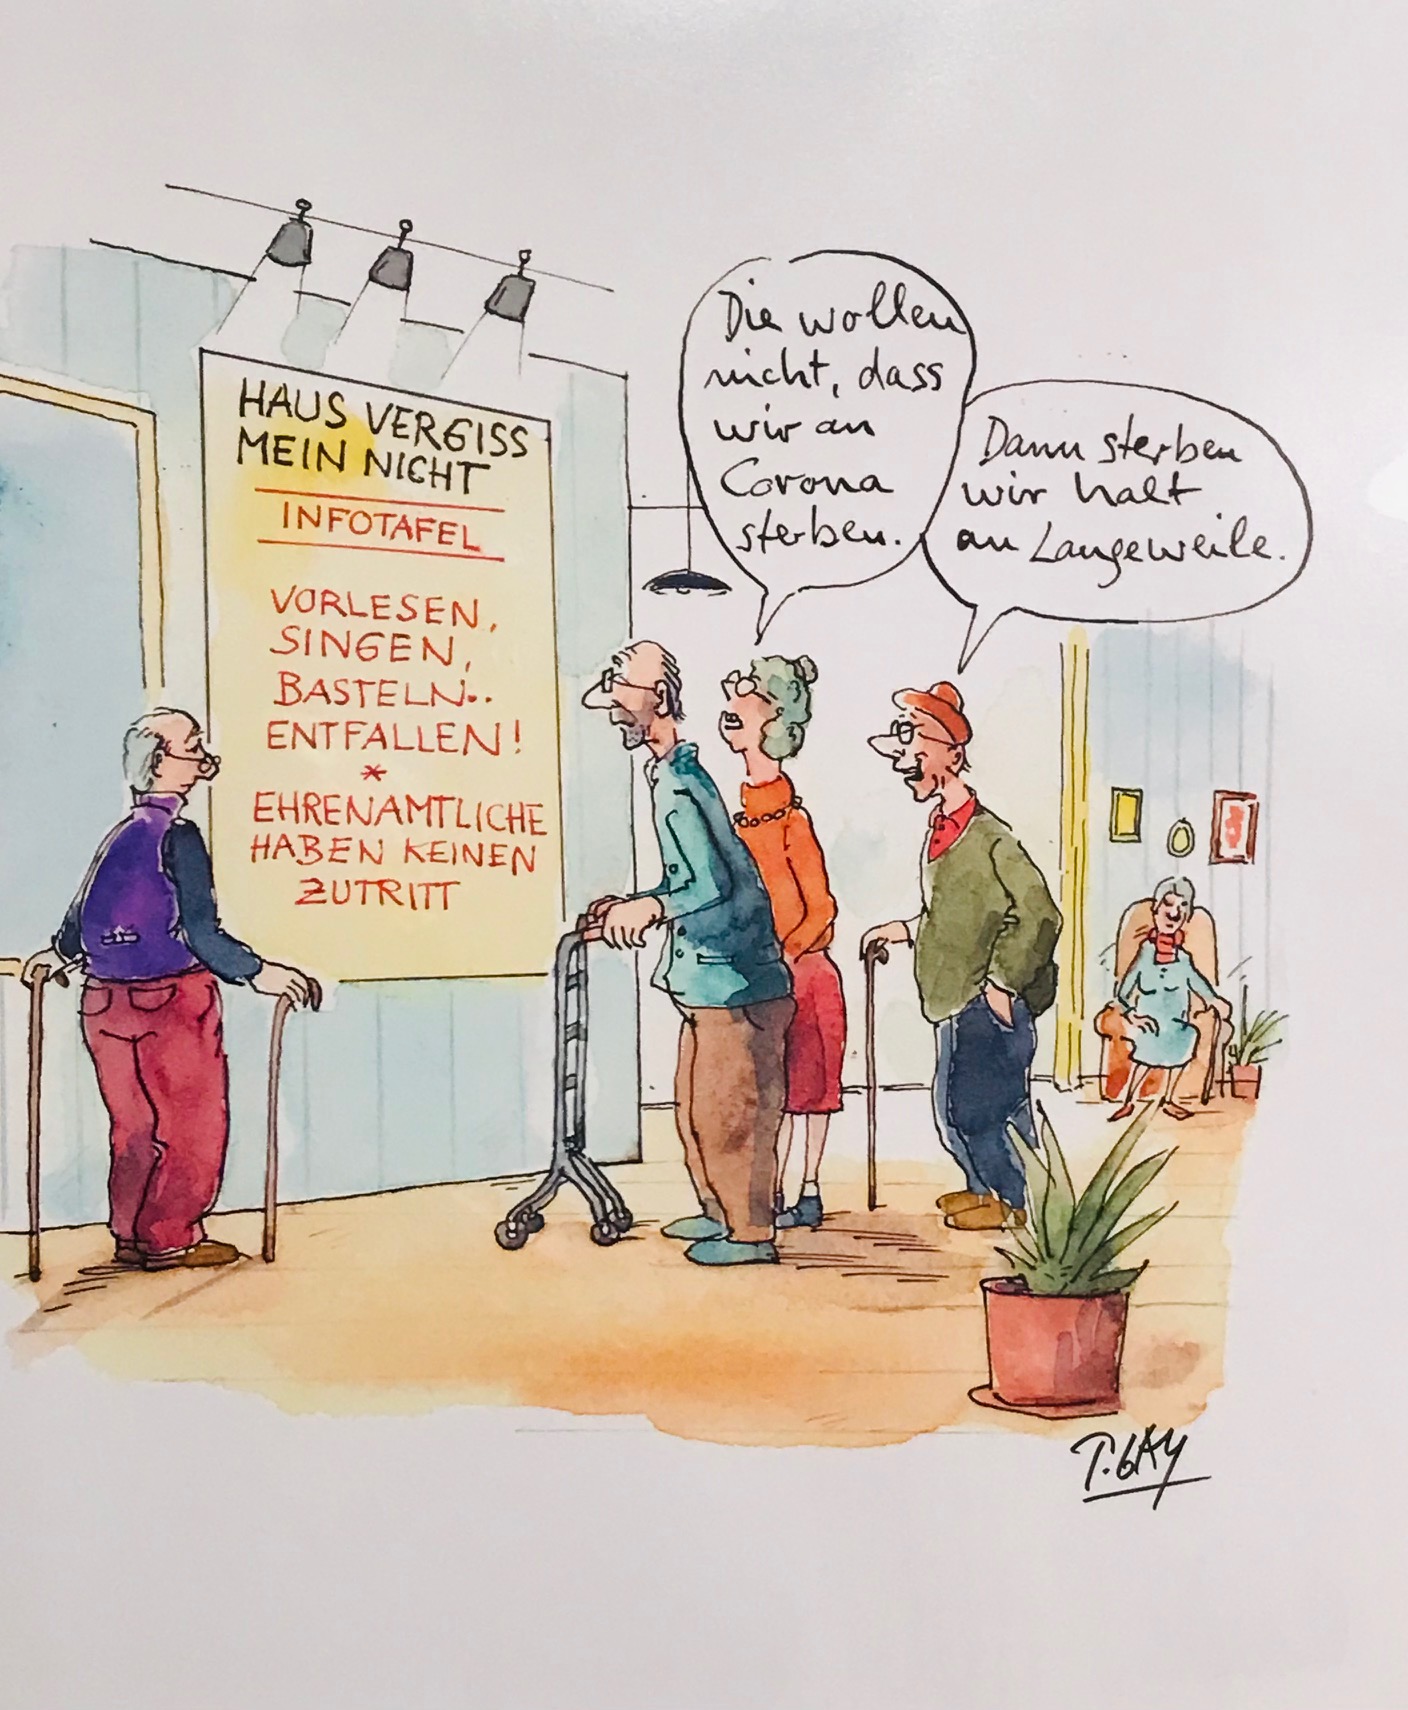 HAUS VERGISS
MEIN NICHT
INFOTAFEL
VORLESEN,
SINGEN,
BASTELN..
ENTFALLEN!
*
EHRENAMTLICHE
HABEN KEINEN
ZUTRITT
Die wollen
nicht, dass
wir an
Corona
sterben.
Dann sterben
wir halt
an Langeweile.
T. GAY